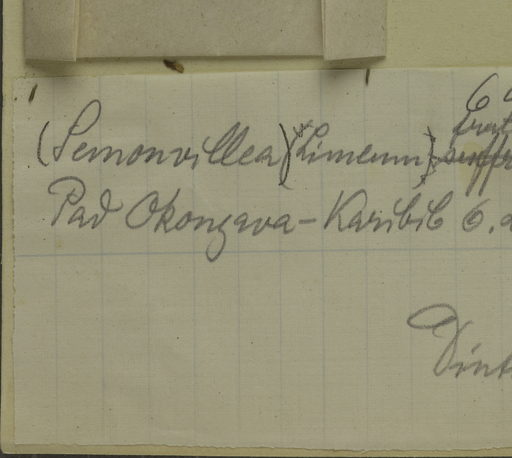 (Semonvillea)(Limeum)
Pad Okongava - Karibib 6.
Dint